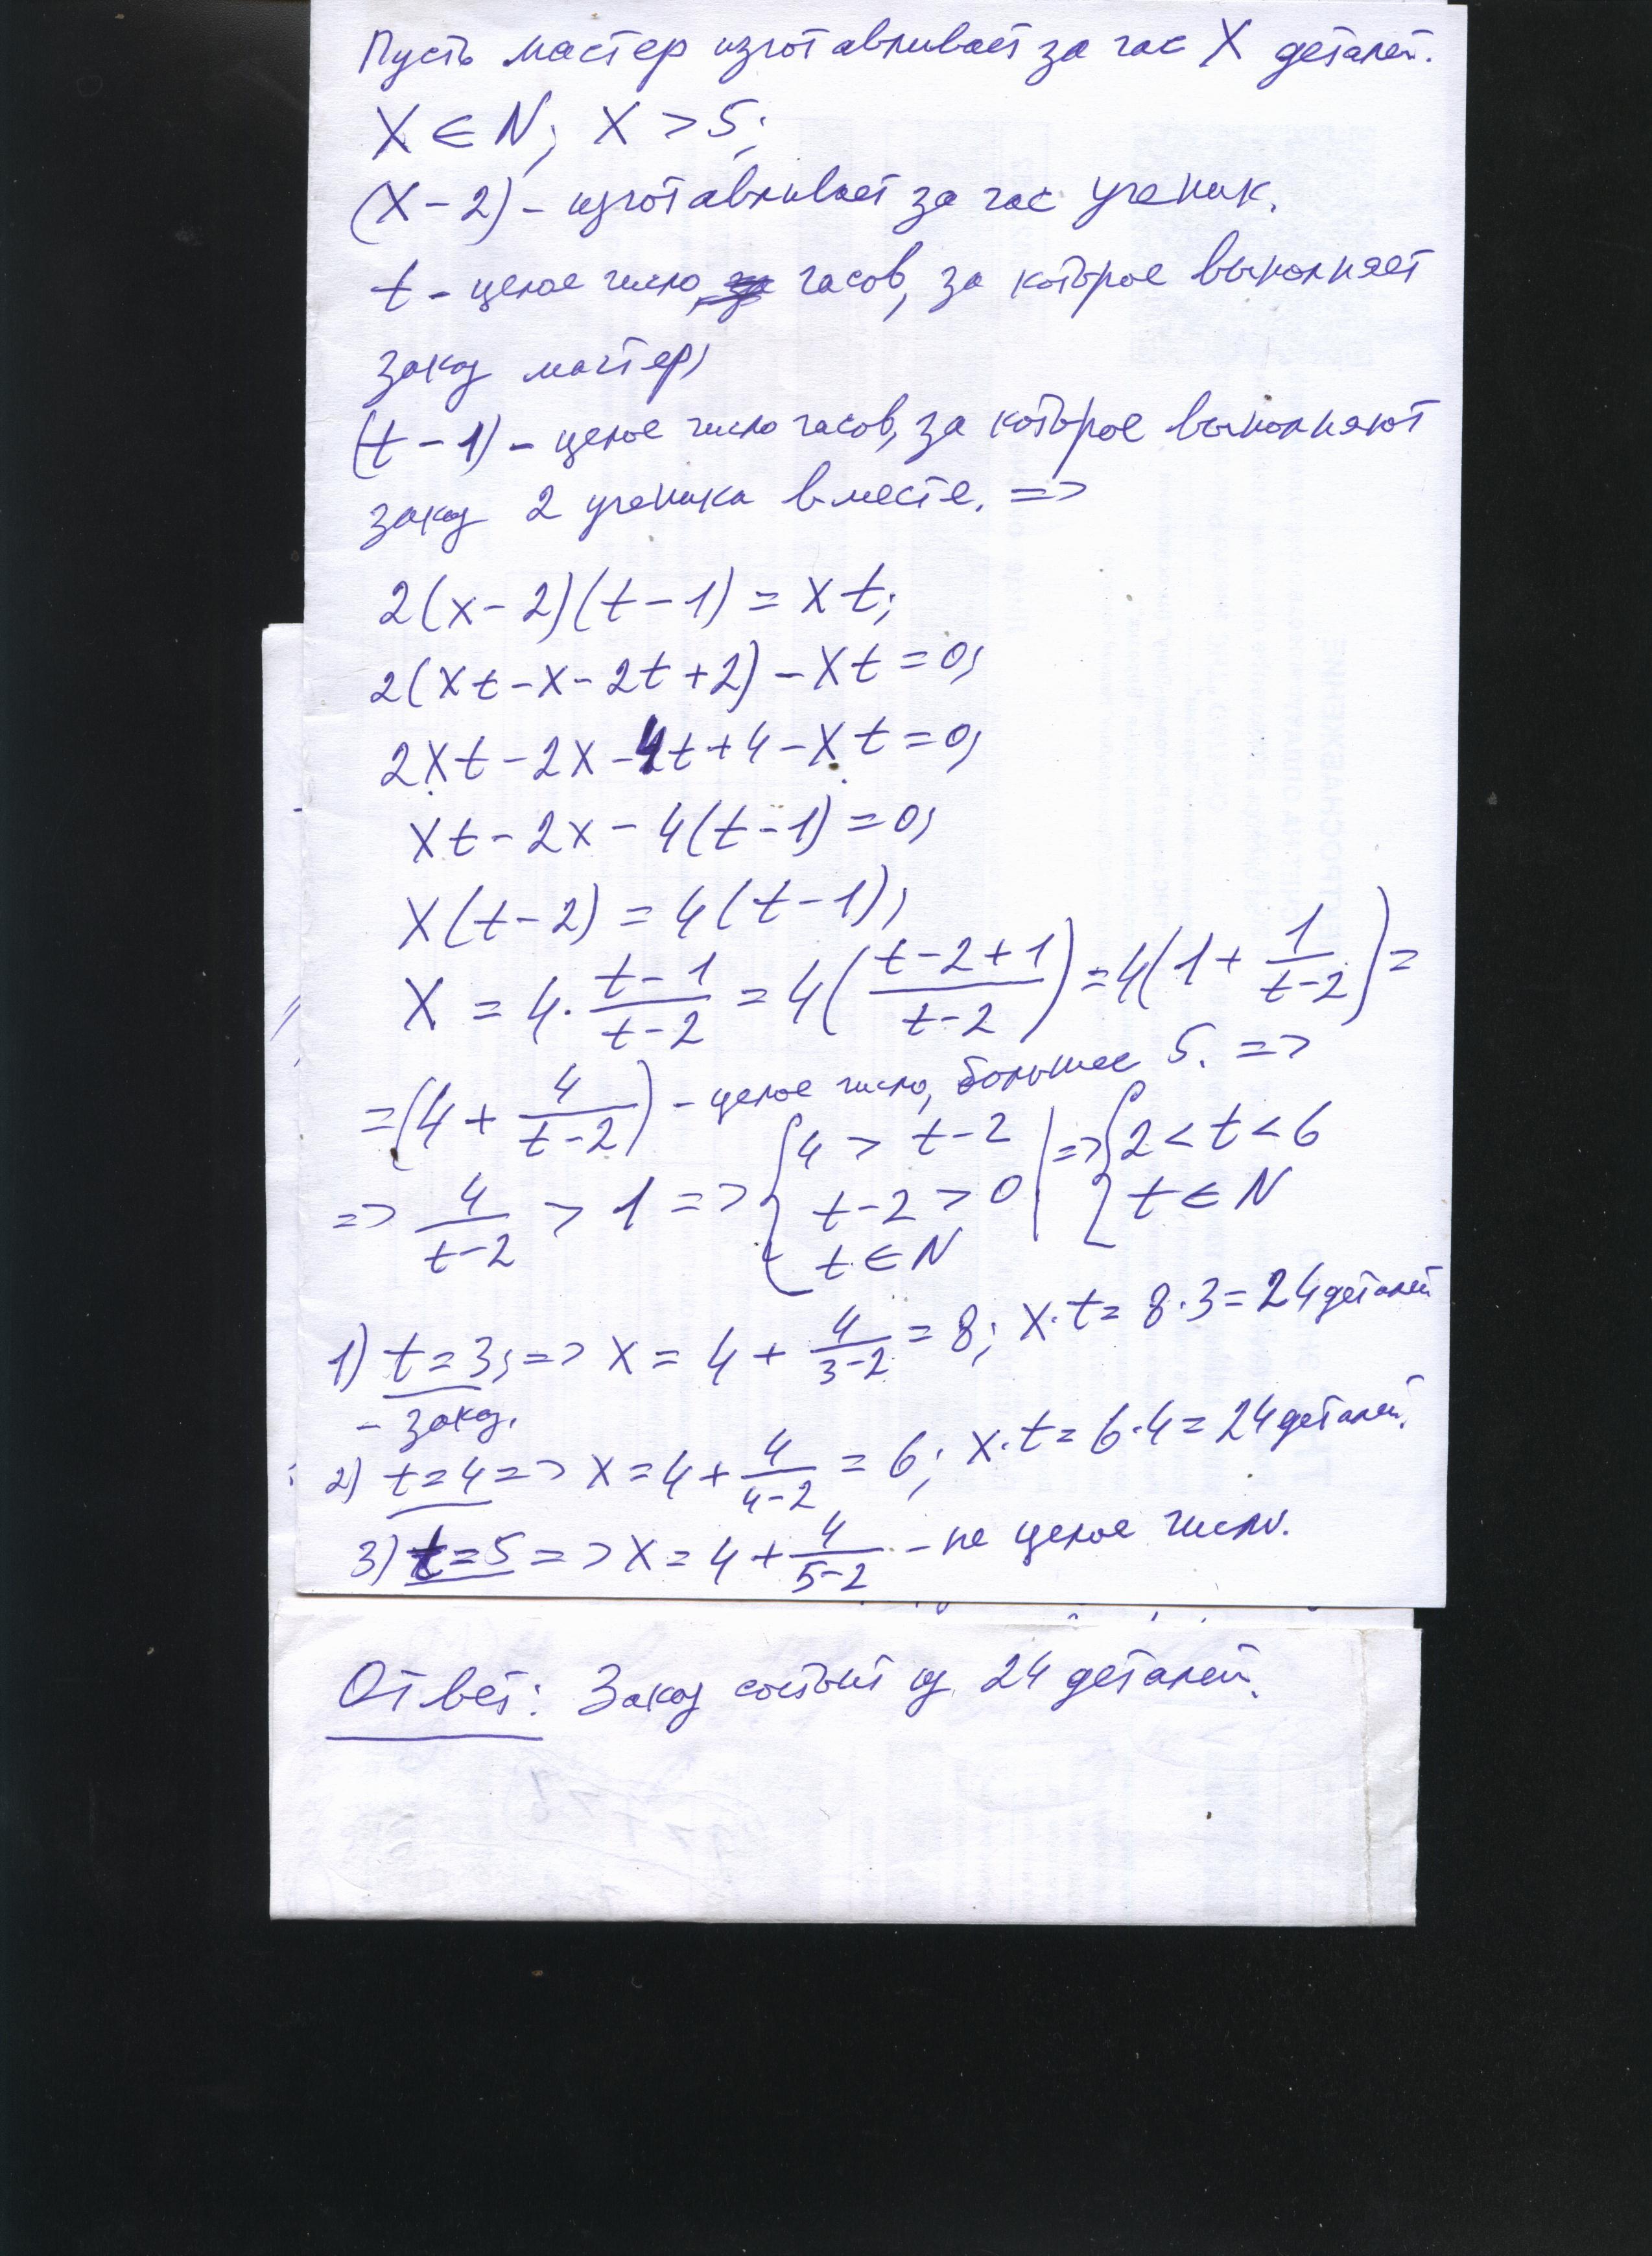 Пусть мастер изготавливает за час X деталей.
X ∈ N; X > 5;
(X - 2) - изготавливает за час ученик.
t - целое число часов, за которое выполняет
заказ мастер,
(t - 1) - целое число часов, за которое выполняют
заказ 2 ученика вместе. =>
2(x - 2)(t - 1) = xt;
2(xt - x - 2t + 2) - xt = 0;
2xt - 2x - 4t + 4 - xt = 0;
xt - 2x - 4(t - 1) = 0;
x(t - 2) = 4(t - 1);
X = 4 · (t - 1)/(t - 2) = 4((t - 2 + 1)/(t - 2)) = 4(1 + 1/(t - 2)) =
= (4 + 4/(t - 2)) - целое число, большее 5. =>
=> 4/(t - 2) > 1 => { 4 > t - 2; t - 2 > 0; t ∈ N | => { 2 < t < 6; t ∈ N
1) t = 3; => x = 4 + 4/(3 - 2) = 8; x · t = 8 · 3 = 24 деталей
- заказ.
2) t = 4 => x = 4 + 4/(4 - 2) = 6; x · t = 6 · 4 = 24 деталей.
3) t = 5 => x = 4 + 4/(5 - 2) - не целое число.
Ответ: Заказ состоит из 24 деталей.